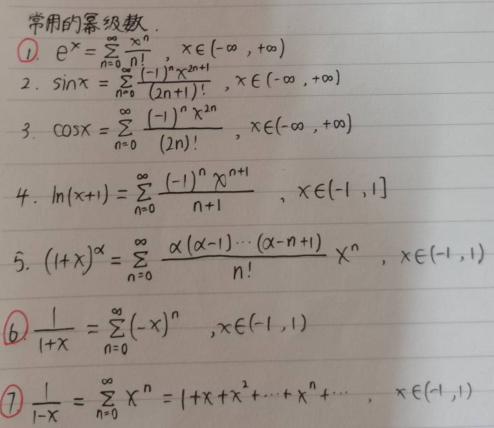 常用的幂级数.
①. e^x = ∑_{n=0}^{∞} x^n/n! , x∈(-∞, +∞)
2. sinx = ∑_{n=0}^{∞} (-1)^n x^{2n+1}/(2n+1)! , x∈(-∞, +∞)
3. cosx = ∑_{n=0}^{∞} (-1)^n x^{2n}/(2n)! , x∈(-∞, +∞)
4. ln(x+1) = ∑_{n=0}^{∞} (-1)^n x^{n+1}/(n+1) , x∈(-1, 1]
5. (1+x)^α = ∑_{n=0}^{∞} α(α-1)···(α-n+1)/n! x^n , x∈(-1, 1)
⑥ 1/(1+x) = ∑_{n=0}^{∞} (-x)^n , x∈(-1, 1)
⑦ 1/(1-x) = ∑_{n=0}^{∞} x^n = 1+x+x^2+···+x^n+··· , x∈(-1, 1)